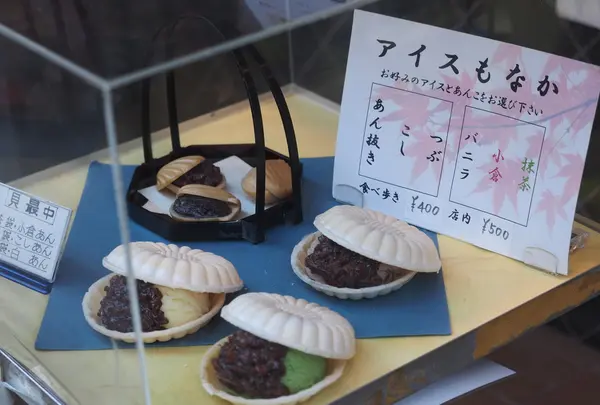 アイスもなか
お好みのアイスとあんこをお選び下さい
抹茶
小倉
バニラ
つぶ
こし
あん抜き
食べ歩き ¥400 店内 ¥500
貝最中
小倉あん
こしあん
白あん